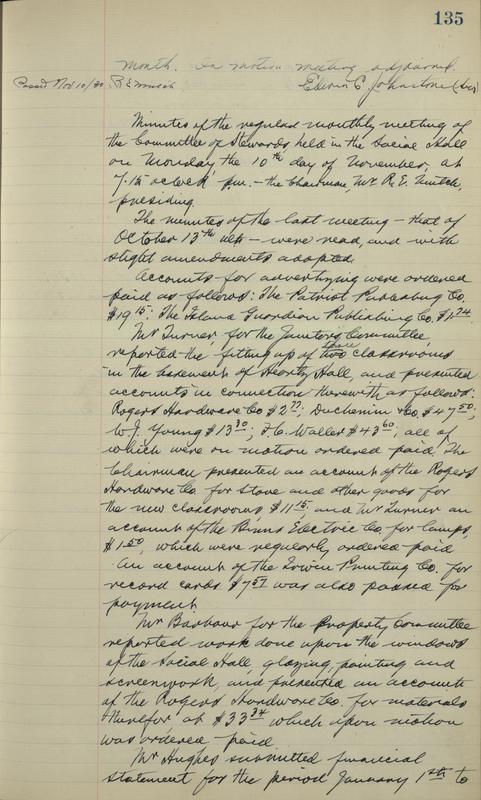 135
month. On motion meeting adjourned.
Passed Nov 10/30 R E Mutch Edwin C Johnstone (Sec)
Minutes of the regular monthly meeting of
the Committee of Stewards held in the Social Hall
on Monday the 10th day of November, at
7.15 oclock pm. – the Chairman, Mr. R. E. Mutch,
presiding.
The minutes of the last meeting – that of
October 13th ult – were read, and with
slight amendments adopted.
Accounts for advertizing were ordered
paid as follows: The Patriot Publishing Co.
$19 15; The Island Guardian Publishing Co. $11.74
Mr Turner, for the Janitors Committee,
reported the fitting up of three classrooms
in the basement of Heartz Hall, and presented
accounts in connection therewith as follows:
Rogers Hardware Co $2 77; Duchemin & Co. $47 50;
W. J. Young $13 30; F. C. Waller $43 60; all of
which were on motion ordered paid. The
Chairman presented an account of the Rogers
Hardware Co. for stove and other goods for
the new classrooms $11 15, and Mr Turner an
account of the Binns Electric Co for lamps,
$1 50, which were regularly ordered paid
An account of the Irwin Printing Co. for
record cards $7 57 was also passed for
payment.
Mr Barbour for the Property Committee
reported work done upon the windows
of the Social Hall, glazing, painting and
screenwork, and presented an account
of the Rogers Hardware Co. for materials
therefor, at $33 34 which upon motion
was ordered paid.
Mr Hughes submitted financial
statement for the period January 1st to